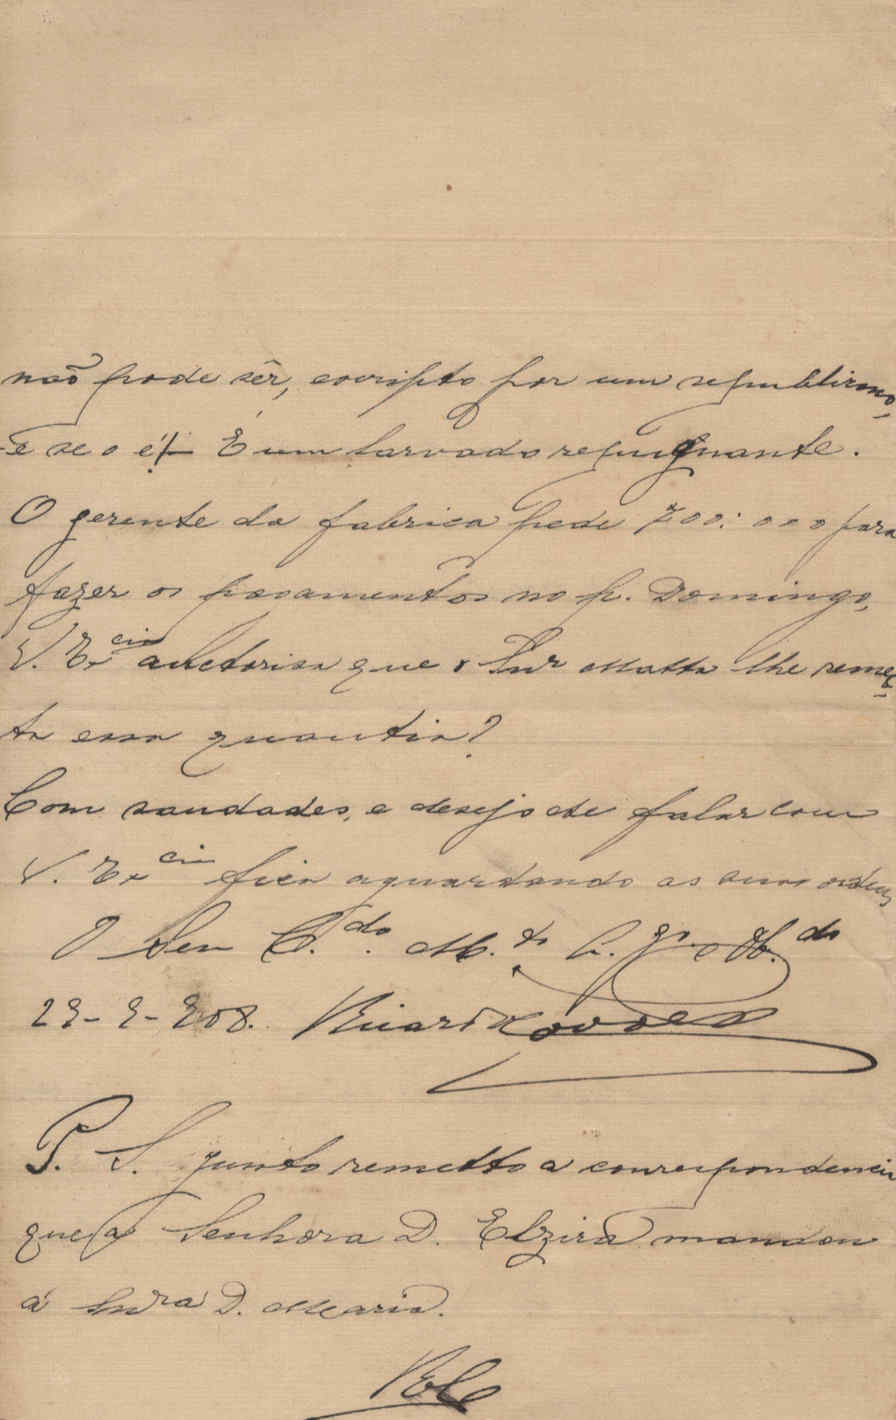 não pode sêr, escripto por um republicano,
e se o é!! É um larvado repugnante.
O gerente da fabrica pede 700:000 para
fazer os pagamentos no p. Domingo,
V. Ex.cia auctorisa que o Snr Matta lhe remet-
ta essa quantia?
Com saudades, e desejo de falar com
V. Ex.cia fica aguardando as suas ordens
O Seu C.do M.to A. gr.o Ob.do
29-9-908. Ricardo
P. S. junto remetto a correspondencia
que a Senhora D. Elzira mandou
á Snra D. Maria.